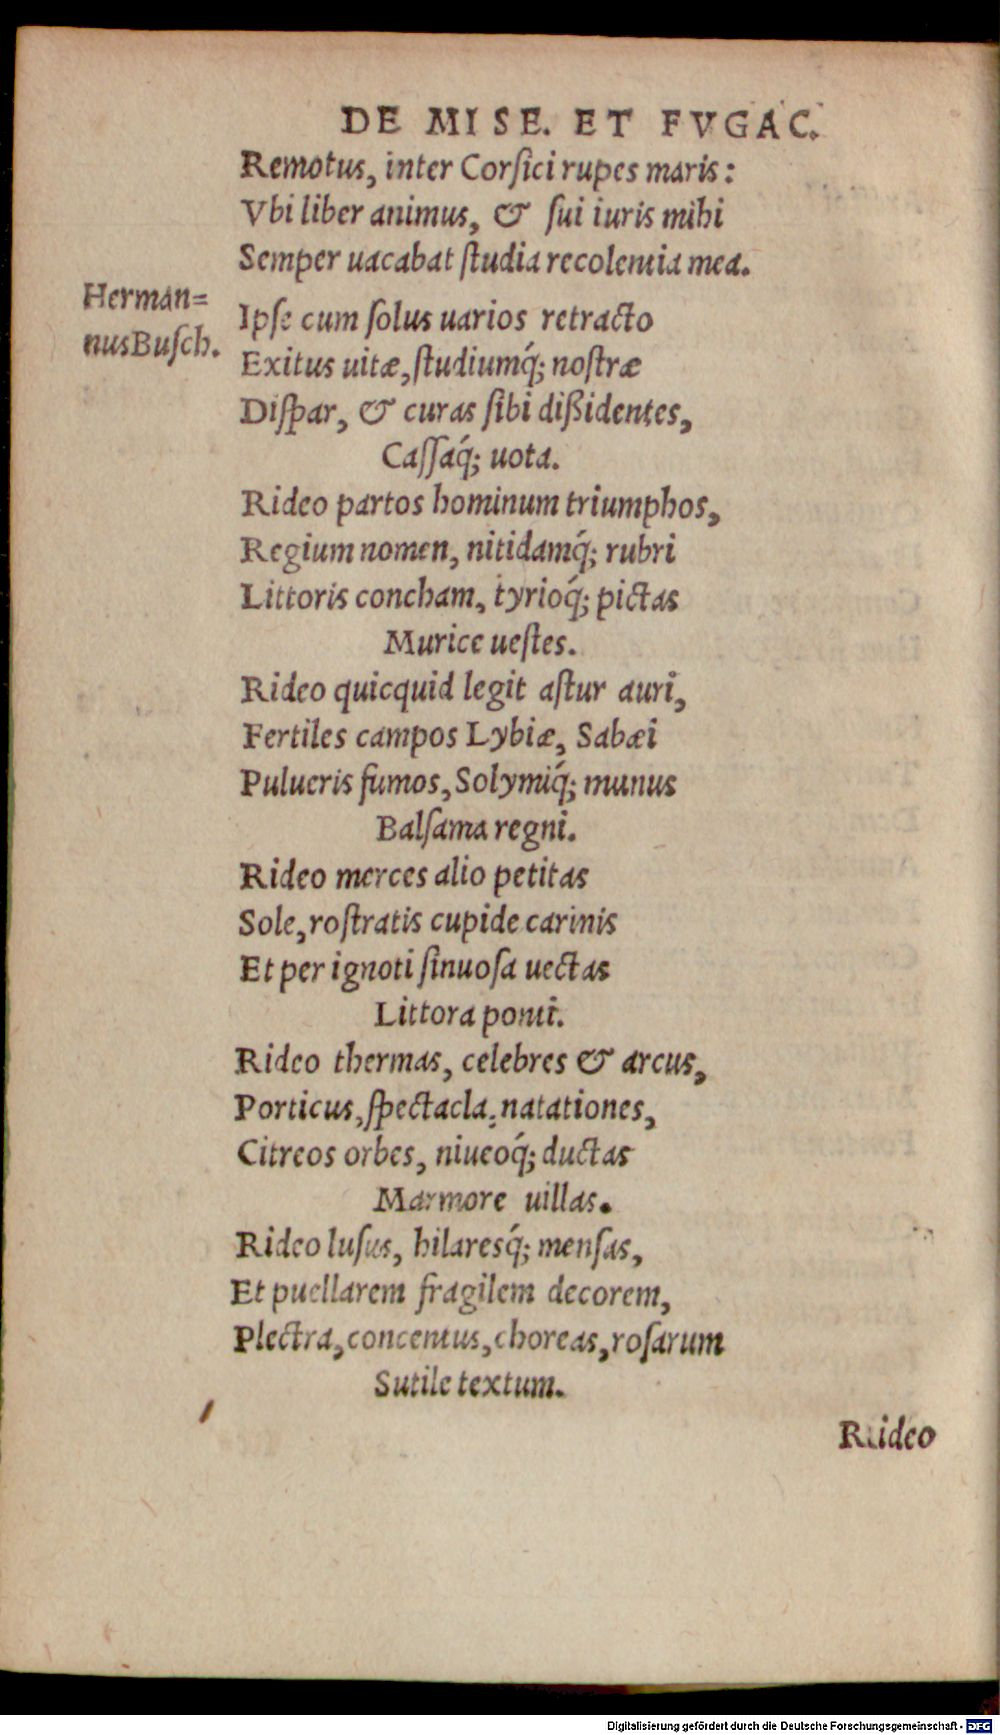 DE MISE. ET FVGAC.
Remotus, inter Corſici rupes maris:
Vbi liber animus, & ſui iuris mihi
Semper uacabat ſtudia recolentia mea.
Herman=
nus Buſch.
Ipſe cum ſolus uarios retracto
Exitus uitæ, ſtudiumq́; noſtræ
Diſpar, & curas ſibi dißidentes,
Caſſaq́; uota.
Rideo partos hominum triumphos,
Regium nomen, nitidamq́; rubri
Littoris concham, tyrioq́; pictas
Murice ueſtes.
Rideo quicquid legit aſtur auri,
Fertiles campos Lybiæ, Sabæi
Pulueris fumos, Solymiq́; munus
Balſama regni.
Rideo merces alio petitas
Sole, roſtratis cupide carinis
Et per ignoti ſinuoſa uectas
Littora ponti.
Rideo thermas, celebres & arcus,
Porticus, ſpectacla, natationes,
Citreos orbes, niueoq́; ductas
Marmore uillas.
Rideo luſus, hilaresq́; menſas,
Et puellarem fragilem decorem,
Plectra, concentus, choreas, roſarum
Sutile textum.
Rideo
Digitalisierung gefördert durch die Deutsche Forschungsgemeinschaft - DFG